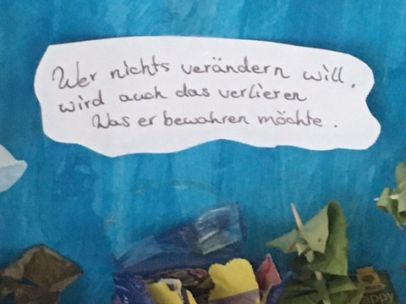 Wer nichts verändern will,
wird auch das verlieren
Was er bewahren möchte.